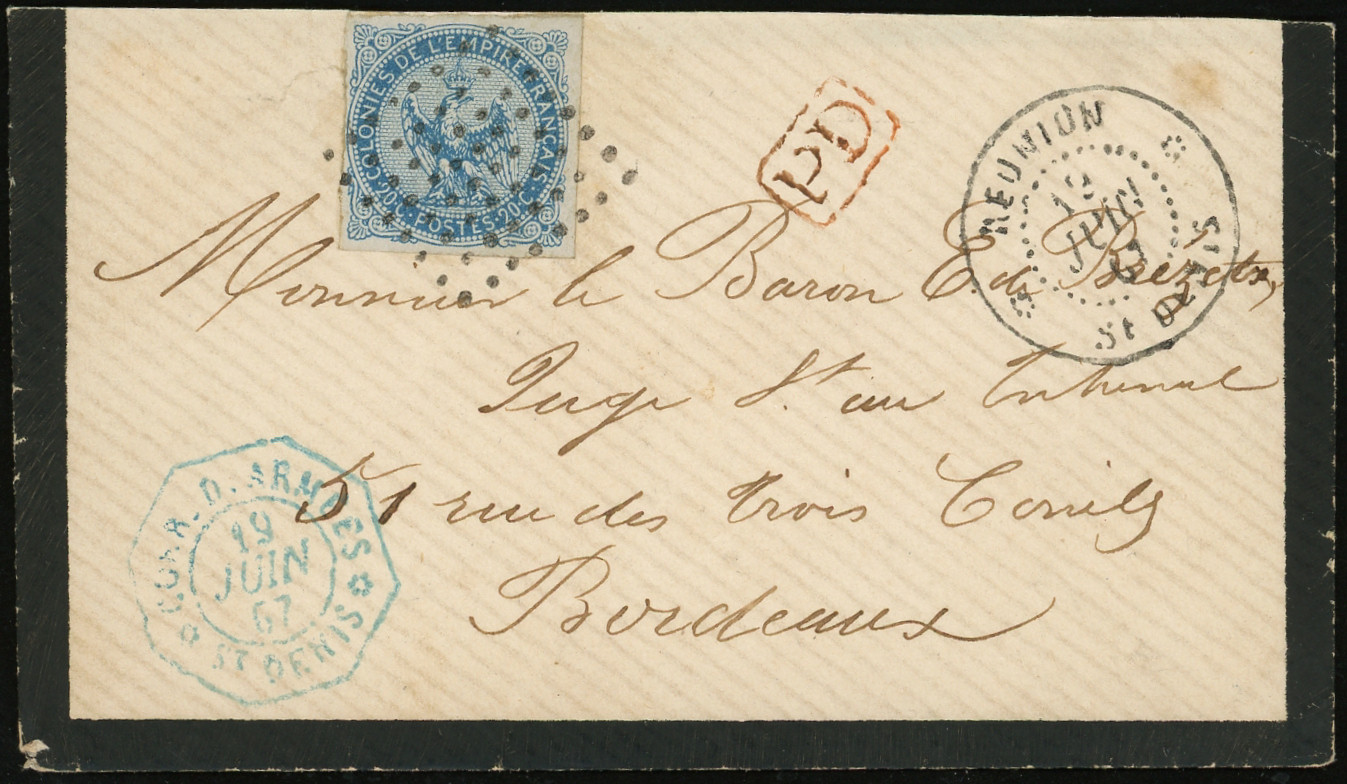 COLONIES DE L'EMPIRE FRANÇAIS
20C. POSTES 20C.
PD
REUNION
19
JUIN
67
St DENIS
Monsieur le Baron E de
Juge St au Tribunal
51 rue des trois Conils
Bordeaux
CORR. D. ARMÉES
19
JUIN
67
ST DENIS